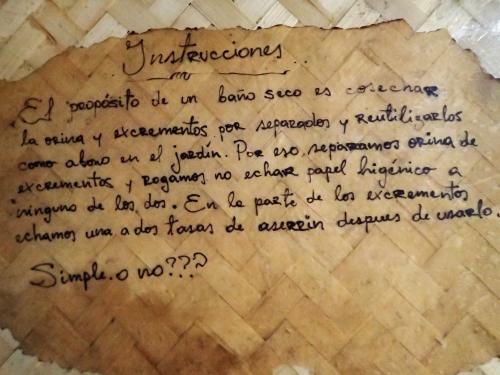 Instrucciones
El propósito de un baño seco es cosechar
la orina y excrementos por separados y reutilizarlos
como abono en el jardín. Por eso separamos orina de
excrementos y rogamos no echar papel higénico a
ninguno de los dos. En la parte de los excrementos
echamos una a dos tasas de aserrin despues de usarlo
Simple.o no???